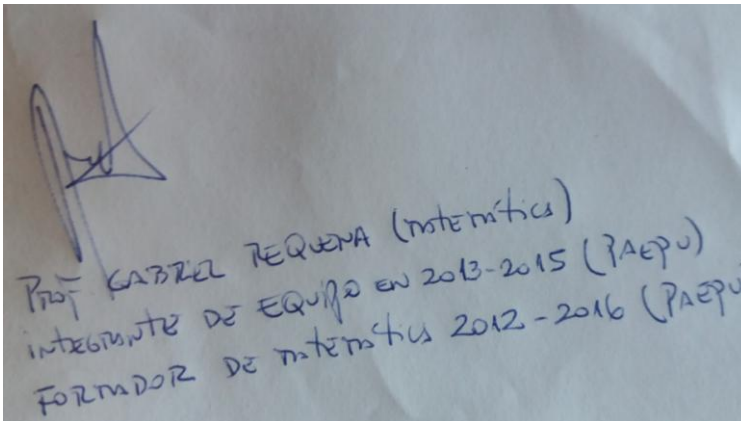 Prof GABRIEL REQUENA (matemática)
INTEGRANTE DE EQUIPO EN 2013-2015 (PAEPU)
FORMADOR DE matemática 2012-2016 (PAEPU